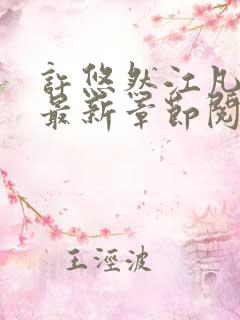 許悠然江凡
最新章節閱
王淫波